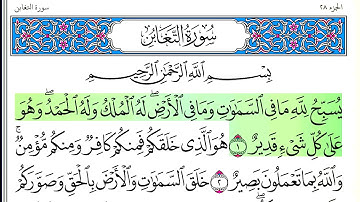 الجزء ٢٨
سورة التغابن
سُورَةُ التَّغَابُنِ
بِسْمِ ٱللَّهِ ٱلرَّحْمَٰنِ ٱلرَّحِيمِ
يُسَبِّحُ لِلَّهِ مَا فِي ٱلسَّمَٰوَٰتِ وَمَا فِي ٱلْأَرْضِۖ لَهُ ٱلْمُلْكُ وَلَهُ ٱلْحَمْدُۖ وَهُوَ
عَلَىٰ كُلِّ شَيْءٍ قَدِيرٌ ١ هُوَ ٱلَّذِي خَلَقَكُمْ فَمِنكُمْ كَافِرٌ وَمِنكُم مُّؤْمِنٌۚ
وَٱللَّهُ بِمَا تَعْمَلُونَ بَصِيرٌ ٢ خَلَقَ ٱلسَّمَٰوَٰتِ وَٱلْأَرْضَ بِٱلْحَقِّ وَصَوَّرَكُمْ